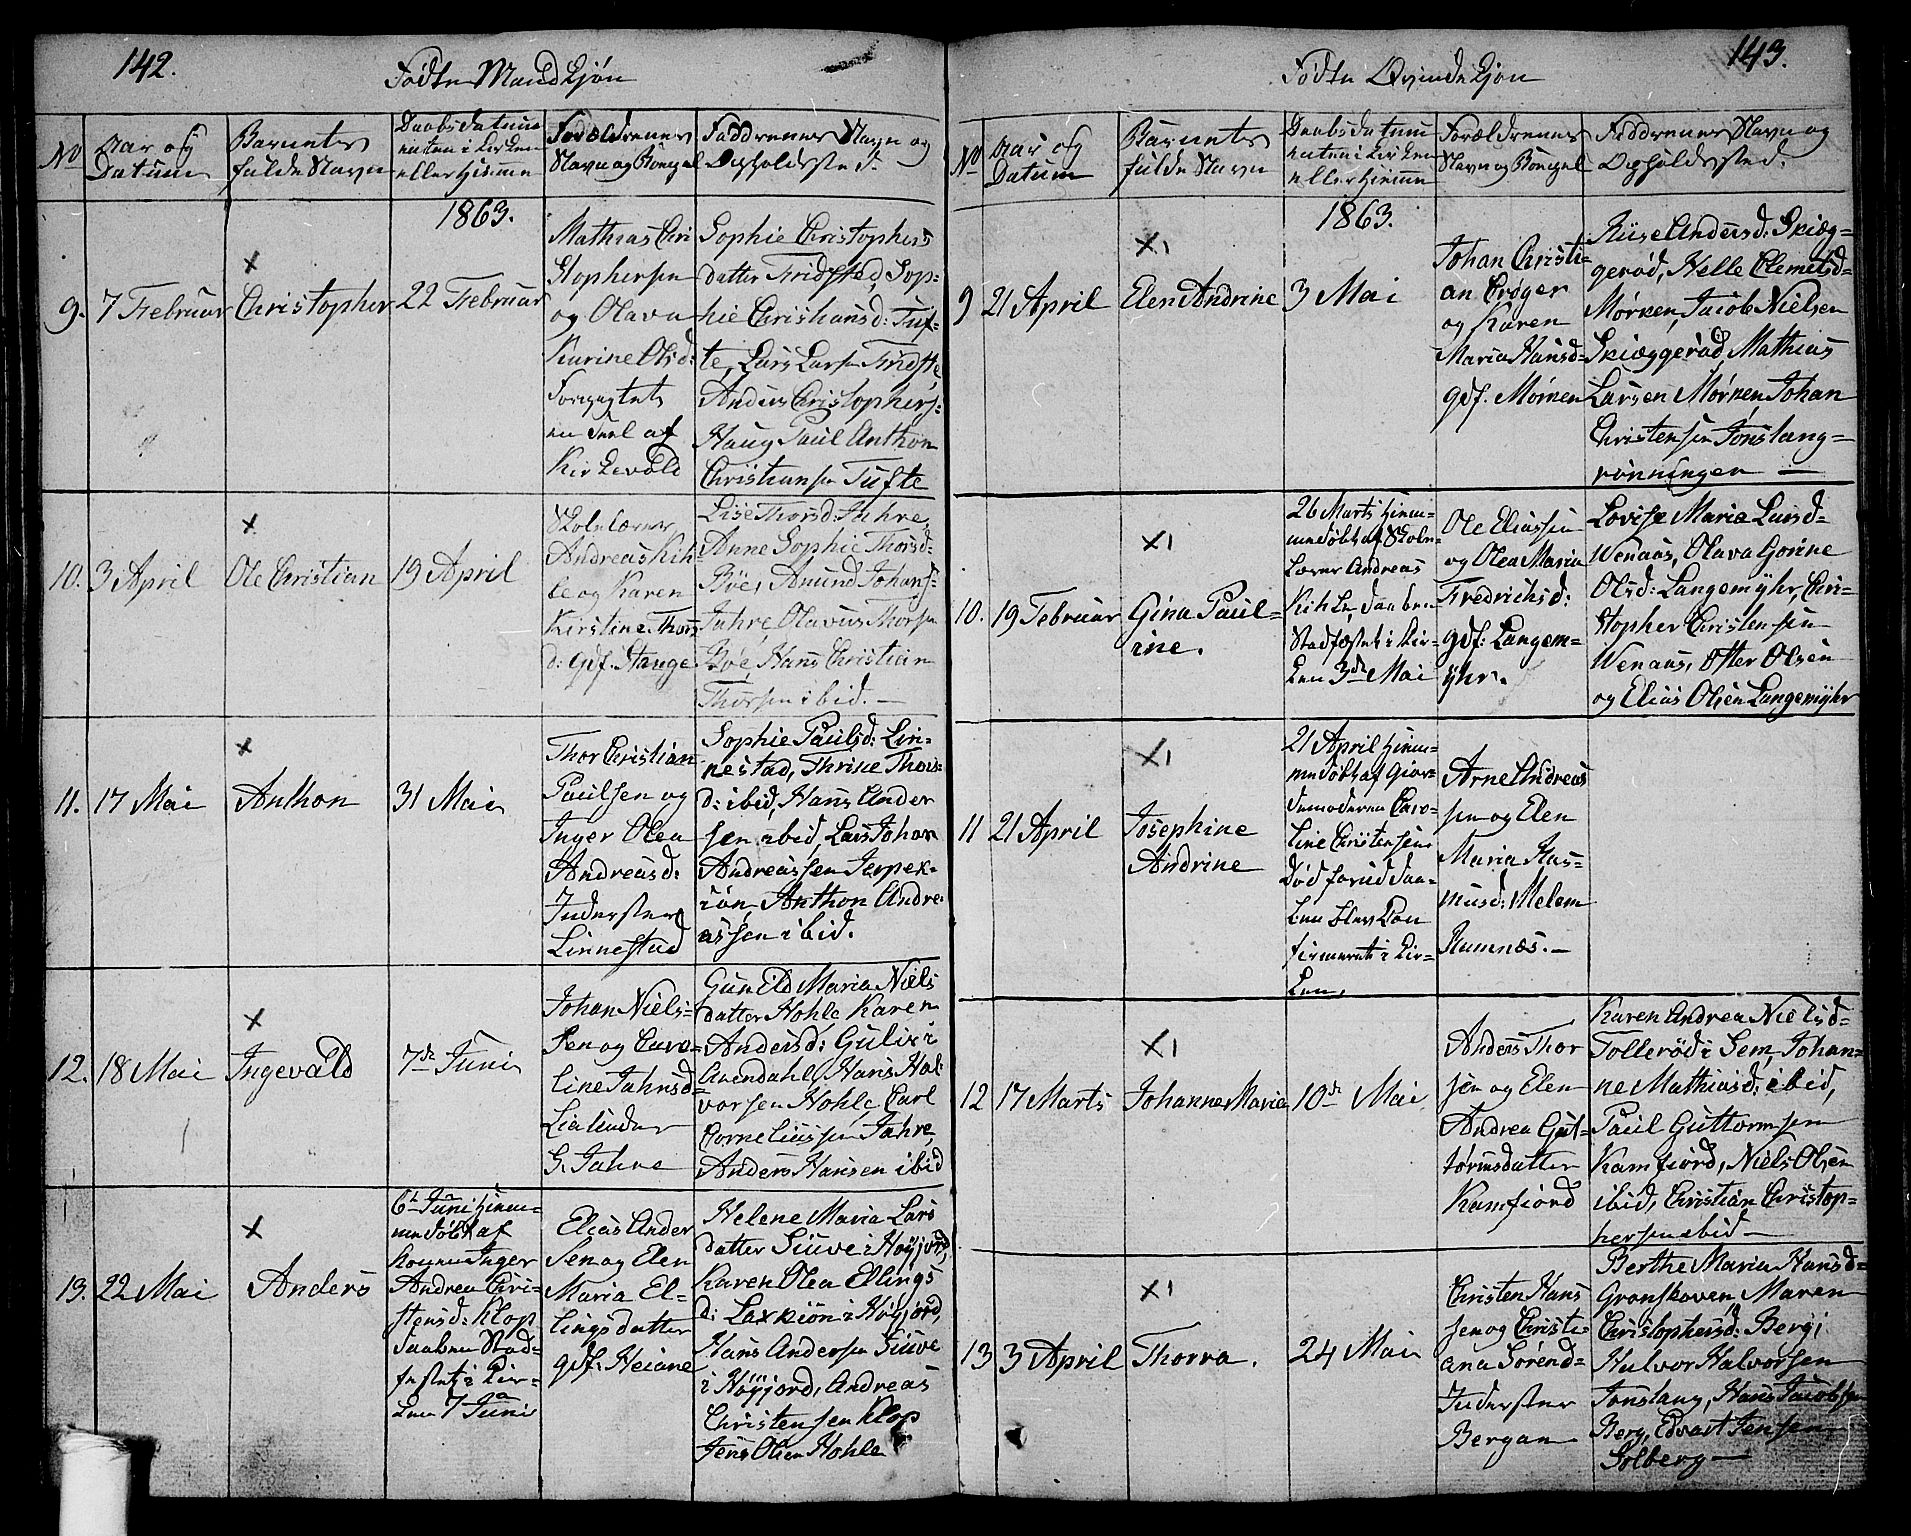 142.
Födte Mandkjön
No
Aar og
Datum
Barnets
fulde Navn
Daabsdatum
enten i Kirken
eller Hjemme
Forældrenes
Navn og Bopæl
Faddrenes Navn og
Opholdsted.
9.
7 Februar
Christopher
1863.
22 Februar
Mathias Chri
stophersen
og Olava
Karine Olsd:
Forpagtet
en Deel af
Kirkevold
Sophie Christophers
datter Fridsted, Sop-
hie Christiansd: Tuf-
te, Lars Larsen Fridste
Anders Christophers-
Haug Paul Anthon
Christiansen Tufte
10.
3 April
Ole Christian
19 April
Skolelærer
Andreas Kih-
le og Karen
Kirstine Thors
d: gdf. Stange
Lise Thorsd: Jahre,
Anne Sophie Thorsd-
Böe, Amund Johans-
Jahre Olavus Thorsen
Böe, Hans Christian
Thorsen ibid. —
11.
17 Mai
Anthon
31 Mai
Thor Christian
Paulsen og
Inger Olea
Andreasd:
Inderster
Linnestad
Sophie Paulsd: Lin-
nestad, Thrine Thors-
d: ibid, Hans Ander
sen ibid, Lars Johan
Andreassen Jerpek-
iön Anthon Andre-
assen ibid.
12.
18 Mai
Ingevald
7de Juni
Johan Niels-
sen og Caro-
line Jahnsd-
Lialinder
G. Jahre
Gunild Maria Niels
datter Hohle Karen
Andersd: Gulix i
Arendahl, Hans Hal-
vorsen Hohle Carl
Corneliussen Jahre,
Anders Hansen ibid
13.
22 Mai
Anders
6te Juni Hjem-
me döbt af
Konen Inger
Andrea Chri-
stensd: Klop
Daaben Stad-
fæstet i Kir-
ken 7 Juni
Elias Ander
sen og Elen
Maria El-
lingsdatter
gdf: Heiane
Helene Maria Lars
datter Siuve i Höyjord,
Karen Olea Ellings
d: Laxkiön i Höyjord,
Hans Andersen Siuve
i Höyjord, Andreas
Christensen Klop
Jens Olsen Hohle
143.
Födte Qvindekjön
No
Aar og
Datum
Barnets
fulde Navn
Daabsdatum
enten i Kirken
eller Hjemme
Forældrenes
Navn og Bopæl
Faddrenes Navn og
Opholdsted.
9
21 April
Elen Andrine
1863.
3 Mai
Johan Christi-
an Cröger
og Karen
Maria Hansd-
gdf. Mörken
Riise Andersd: Skiæg-
geröd, Helle Clemetsd-
Mörken, Jacob Nielsen
Skiæggeröd Mathias
Larsen Mörken Johan
Christensen Jonslang-
rönningen —
10.
19 Februar
Gina Paul-
ine.
26 Marts Hjem-
me döbt af Skole-
Lærer Andreas
Kihle, daaben
Stadfæstet i Kir-
ken 3de Mai
Ole Eliassen
og Olea Maria
Fredrichsd:
gdf: Langem-
yhr.
Lovise Marie Larsd-
Wenaas, Olava Gorine
Olsd: Langemyhr, Chri-
stopher Christensen
Wenaas, Otter Olsen
og Elias Olsen Langemyhr
11
21 April
Josephine
Andrine
21 April Hjem-
me döbt af Gior-
demoderen Caro-
line Christensen
död forud Daa-
ben blev Con
firmeret i Kir-
ken,
Arne Andreas
sen og Elen
Maria Ras-
musd: Melem
Ramnæs. —
12
17 Marts
Johanne Marie
10de Mai
Anders Thor
sen og Elen
Andrea Gut-
tormsdatter
Kamfjord
Karen Andrea Nielsd-
Tolleröd i Sem, Johan-
ne Mathiasd: ibid,
Paul Guttormsen
Kamfiord, Niels Olsen
ibid, Christian Christop-
hersen ibid —
13
3 April
Thorva.
24 Mai
Christen Hans
sen og Christi-
ana Sörend-
Inderster
Bergan
Berthe Maria Hansd-
Gronskoven Maren
Christophersd: Berg,
Halvor Halvorsen
Jonslang, Hans Jacobsen
Berg, Edvart Jensen
Solberg —